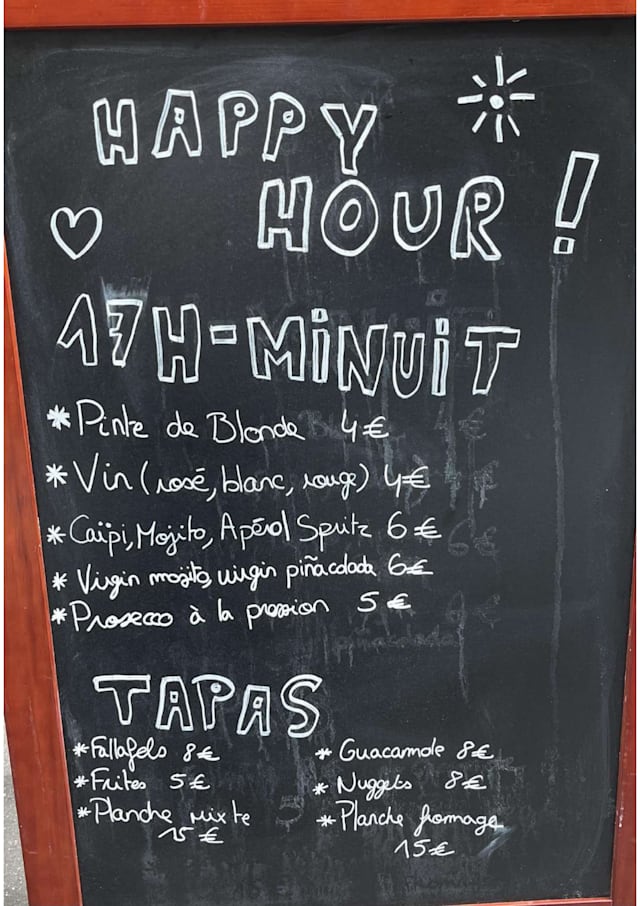 HAPPY
HOUR !
17H-MiNUiT
* Pinte de Blonde 4€
* Vin (rosé, blanc, rouge) 4€
* Caïpi, Mojito, Apérol Spritz 6€
* Virgin mojito, virgin piñacolada 6€
* Prosecco à la pression 5€
TAPAS
* Fallafels 8€
* Frites 5€
* Planche mixte
15€
* Guacamole 8€
* Nuggets 8€
* Planche fromage
15€